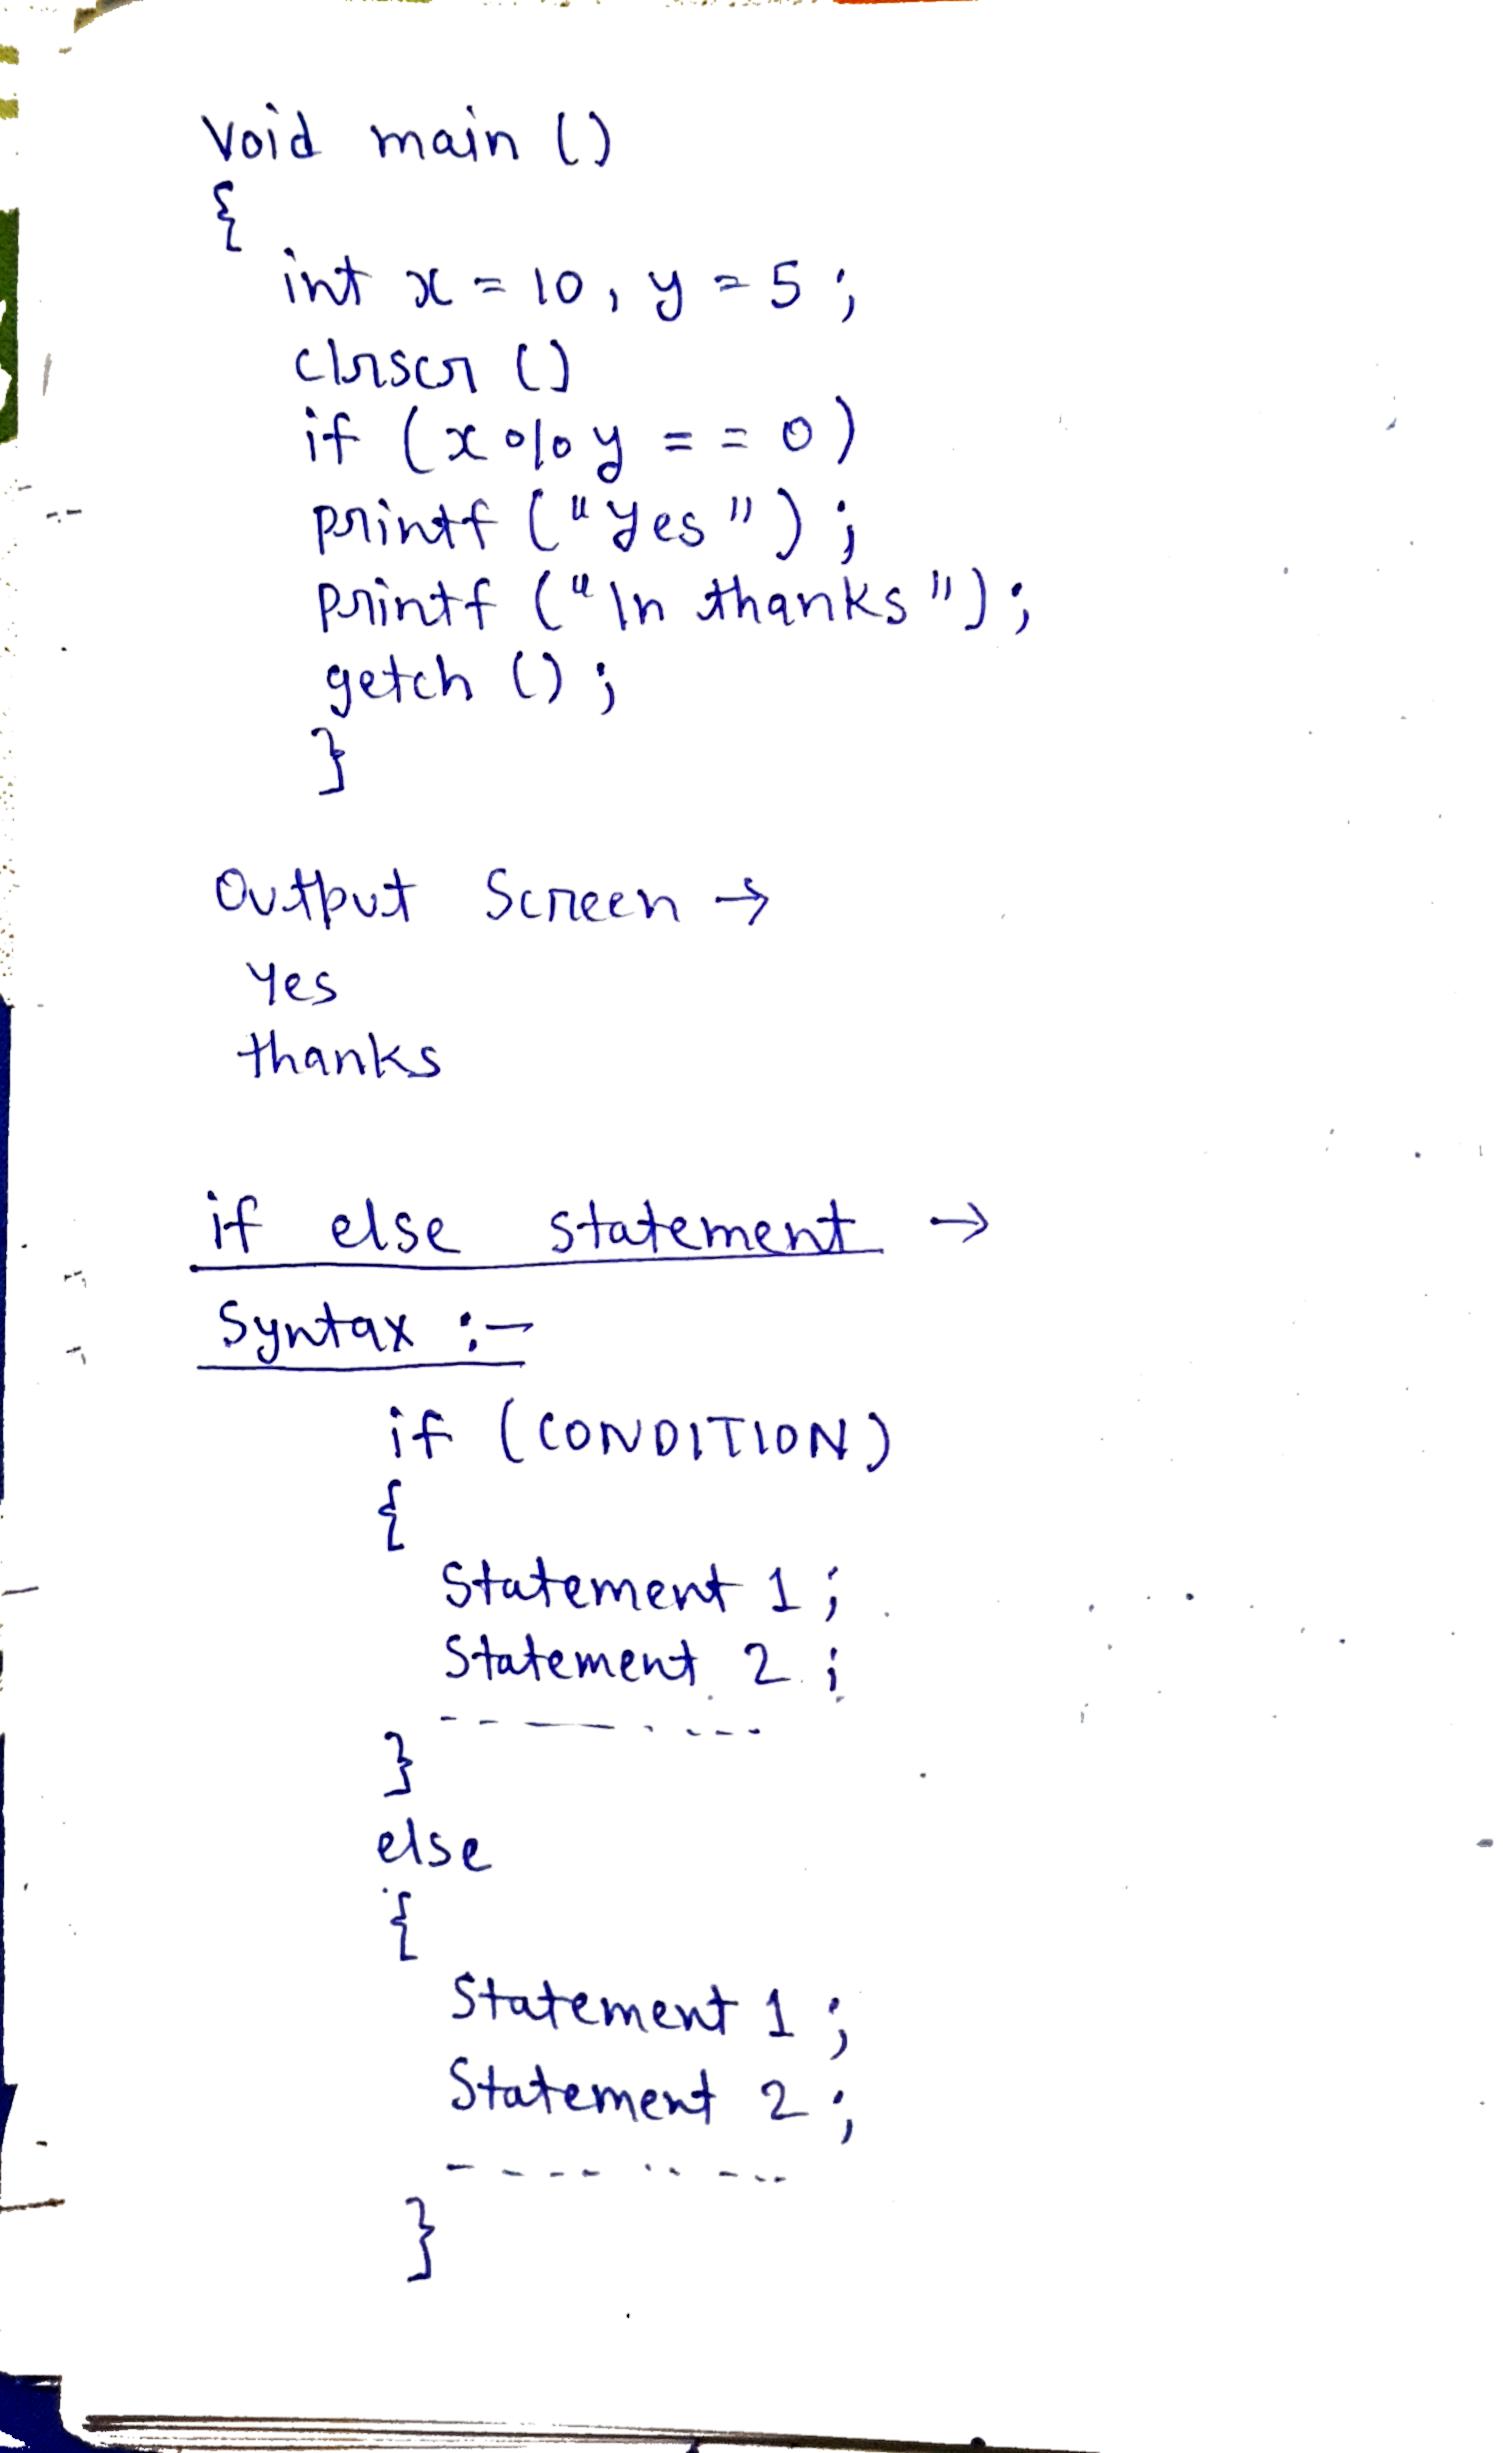 Void main ()
{
int x = 10, y = 5 ;
clrscr ()
if (x % y == 0)
printf ("Yes") ;
printf ("\n thanks") ;
getch () ;
}
Output Screen →
Yes
thanks
if else statement →
Syntax :-
if (CONDITION)
{
Statement 1 ;
Statement 2 ;
- - - - - - -
}
else
{
Statement 1 ;
Statement 2 ;
- - - - - - - -
}